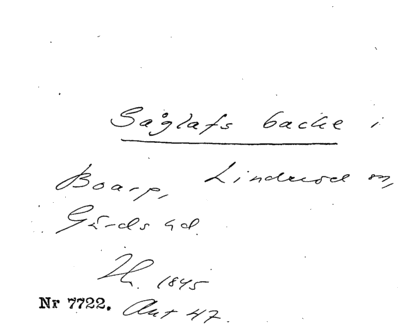 Såglafs backe i
Boarp, Linderöd sn,
Gärds hd.
1845
Nr 7722. Ant 47.